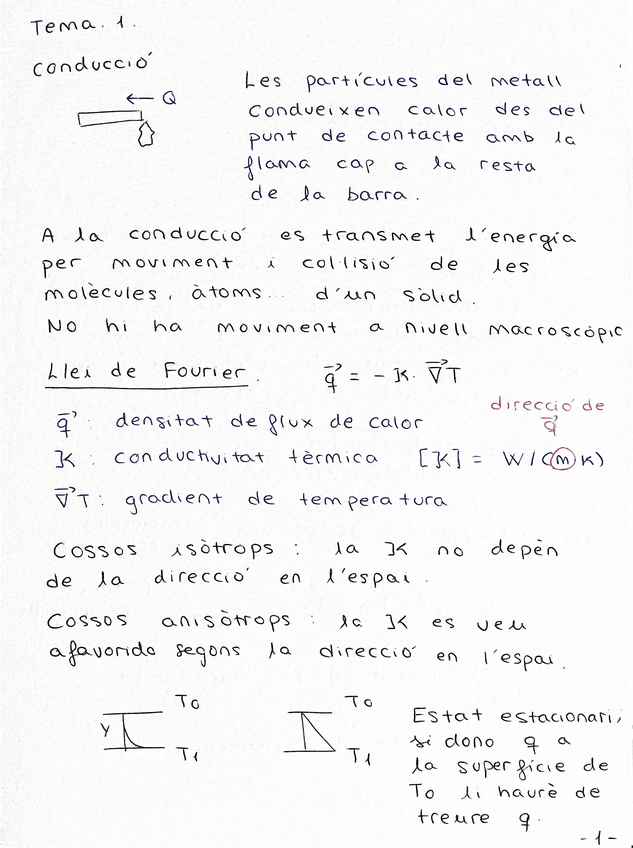 Tema. 1.
Conducció
← Q
Les partícules del metall
condueixen calor des del
punt de contacte amb la
flama cap a la resta
de la barra.
A la conducció es transmet l'energia
per moviment i col·lisió de les
molècules, àtoms... d'un sòlid.
No hi ha moviment a nivell macroscòpic
Llei de Fourier. q⃗ = - K · ∇⃗T
direcció de
q⃗
q⃗ : densitat de flux de calor
K : conductivitat tèrmica [K] = W/(m K)
∇⃗T : gradient de temperatura
Cossos isòtrops : la K no depèn
de la direcció en l'espai.
Cossos anisòtrops : la K es veu
afavorida segons la direcció en l'espai.
T0
y
T1
T0
T1
Estat estacionari,
si dono q a
la superfície de
T0 li haurè de
treure q.
-1-